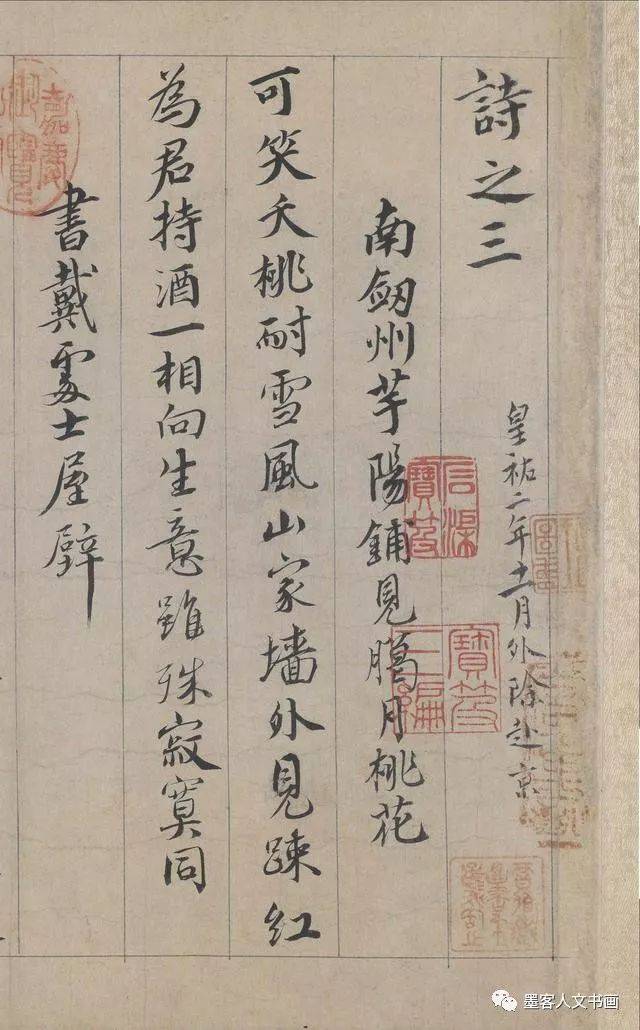 詩之三
皇祐二年十一月外除赴京
南劔州芋陽鋪見臈月桃花
可笑夭桃耐雪風山家墻外見踈紅
為君持酒一相向生意雖殊寂寞同
書戴處士屋壁
墨客人文书画